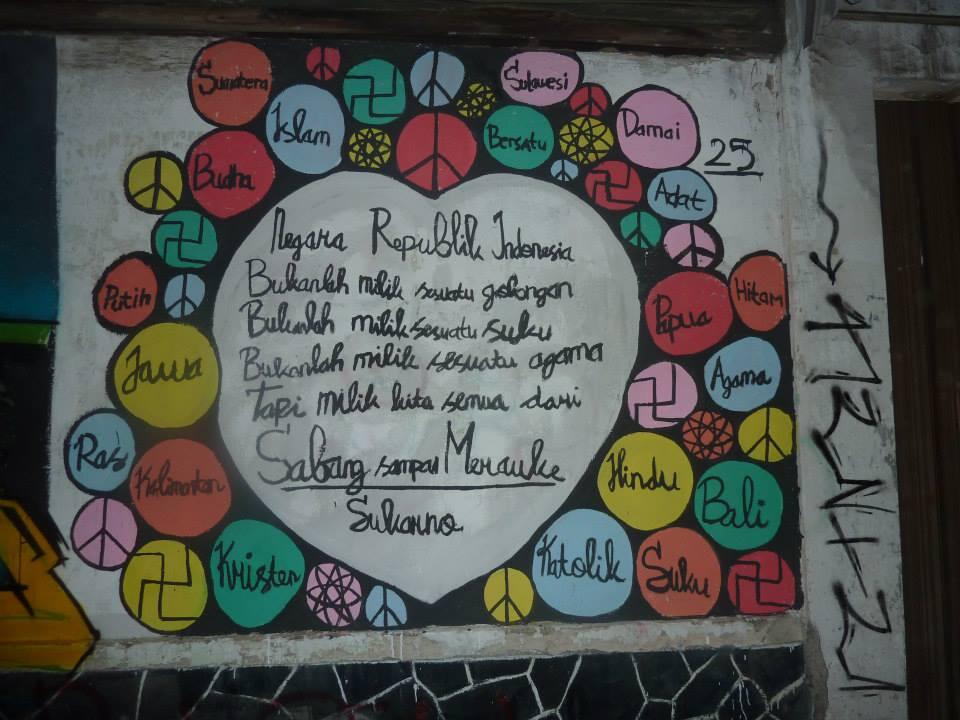 Sumatera
Sulawesi
Islam
Bersatu
Damai
25
Budha
Adat
Putih
Papua
Hitam
Jawa
Agama
Ras
Kalimantan
Hindu
Bali
Kristen
Katolik
Suku
Negara Republik Indonesia
Bukanlah milik sesuatu golongan
Bukanlah milik sesuatu suku
Bukanlah milik sesuatu agama
Tapi milik kita semua dari
Sabang sampai Merauke
Sukarno